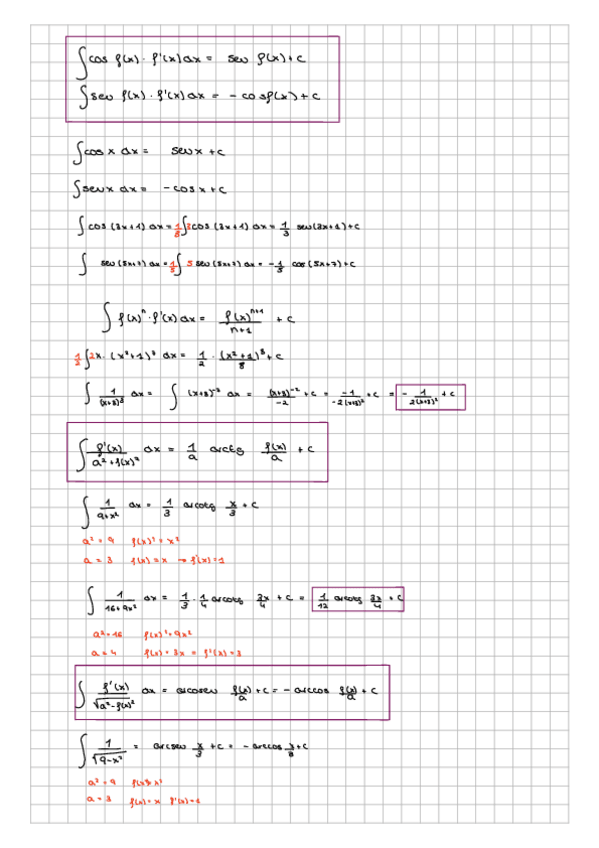 ∫cos f(x) · f'(x) dx = sen f(x) + c
∫sen f(x) · f'(x) dx = - cos f(x) + c
∫cos x dx = sen x + c
∫sen x dx = - cos x + c
∫cos (3x+1) dx = 1/3 ∫3cos (3x+1) dx = 1/3 sen(3x+1) + c
∫ sen (5x+7) dx = 1/5 ∫ 5 sen (5x+7) dx = - 1/5 cos (5x+7) + c
∫ f(x)ⁿ · f'(x) dx = f(x)ⁿ⁺¹/n+1 + c
1/2 ∫2x · (x²+1)⁷ dx = 1/2 · (x²+1)⁸/8 + c
∫ 1/(x+8)³ dx = ∫ (x+8)⁻³ dx = (x+8)⁻²/-2 + c = -1/-2(x+8)² + c = - 1/2(x+8)² + c
∫ f'(x)/a²+f(x)² dx = 1/a arctg f(x)/a + c
∫ 1/9+x² dx = 1/3 arcotg x/3 + c
a² = 9 f(x)² = x²
a = 3 f(x) = x → f'(x) = 1
∫ 1/16+9x² dx = 1/3 · 1/4 arcotg 3x/4 + c = 1/12 arcotg 3x/4 + c
a² = 16 f(x)² = 9x²
a = 4 f(x) = 3x = f'(x) = 3
∫ f'(x)/√a²-f(x)² dx = arcosen f(x)/a + c = - arccos f(x)/a + c
∫ 1/√9-x² = arcsen x/3 + c = - arccos x/3 + c
a² = 9 f(x)² x²
a = 3 f(x) = x f'(x) = 1